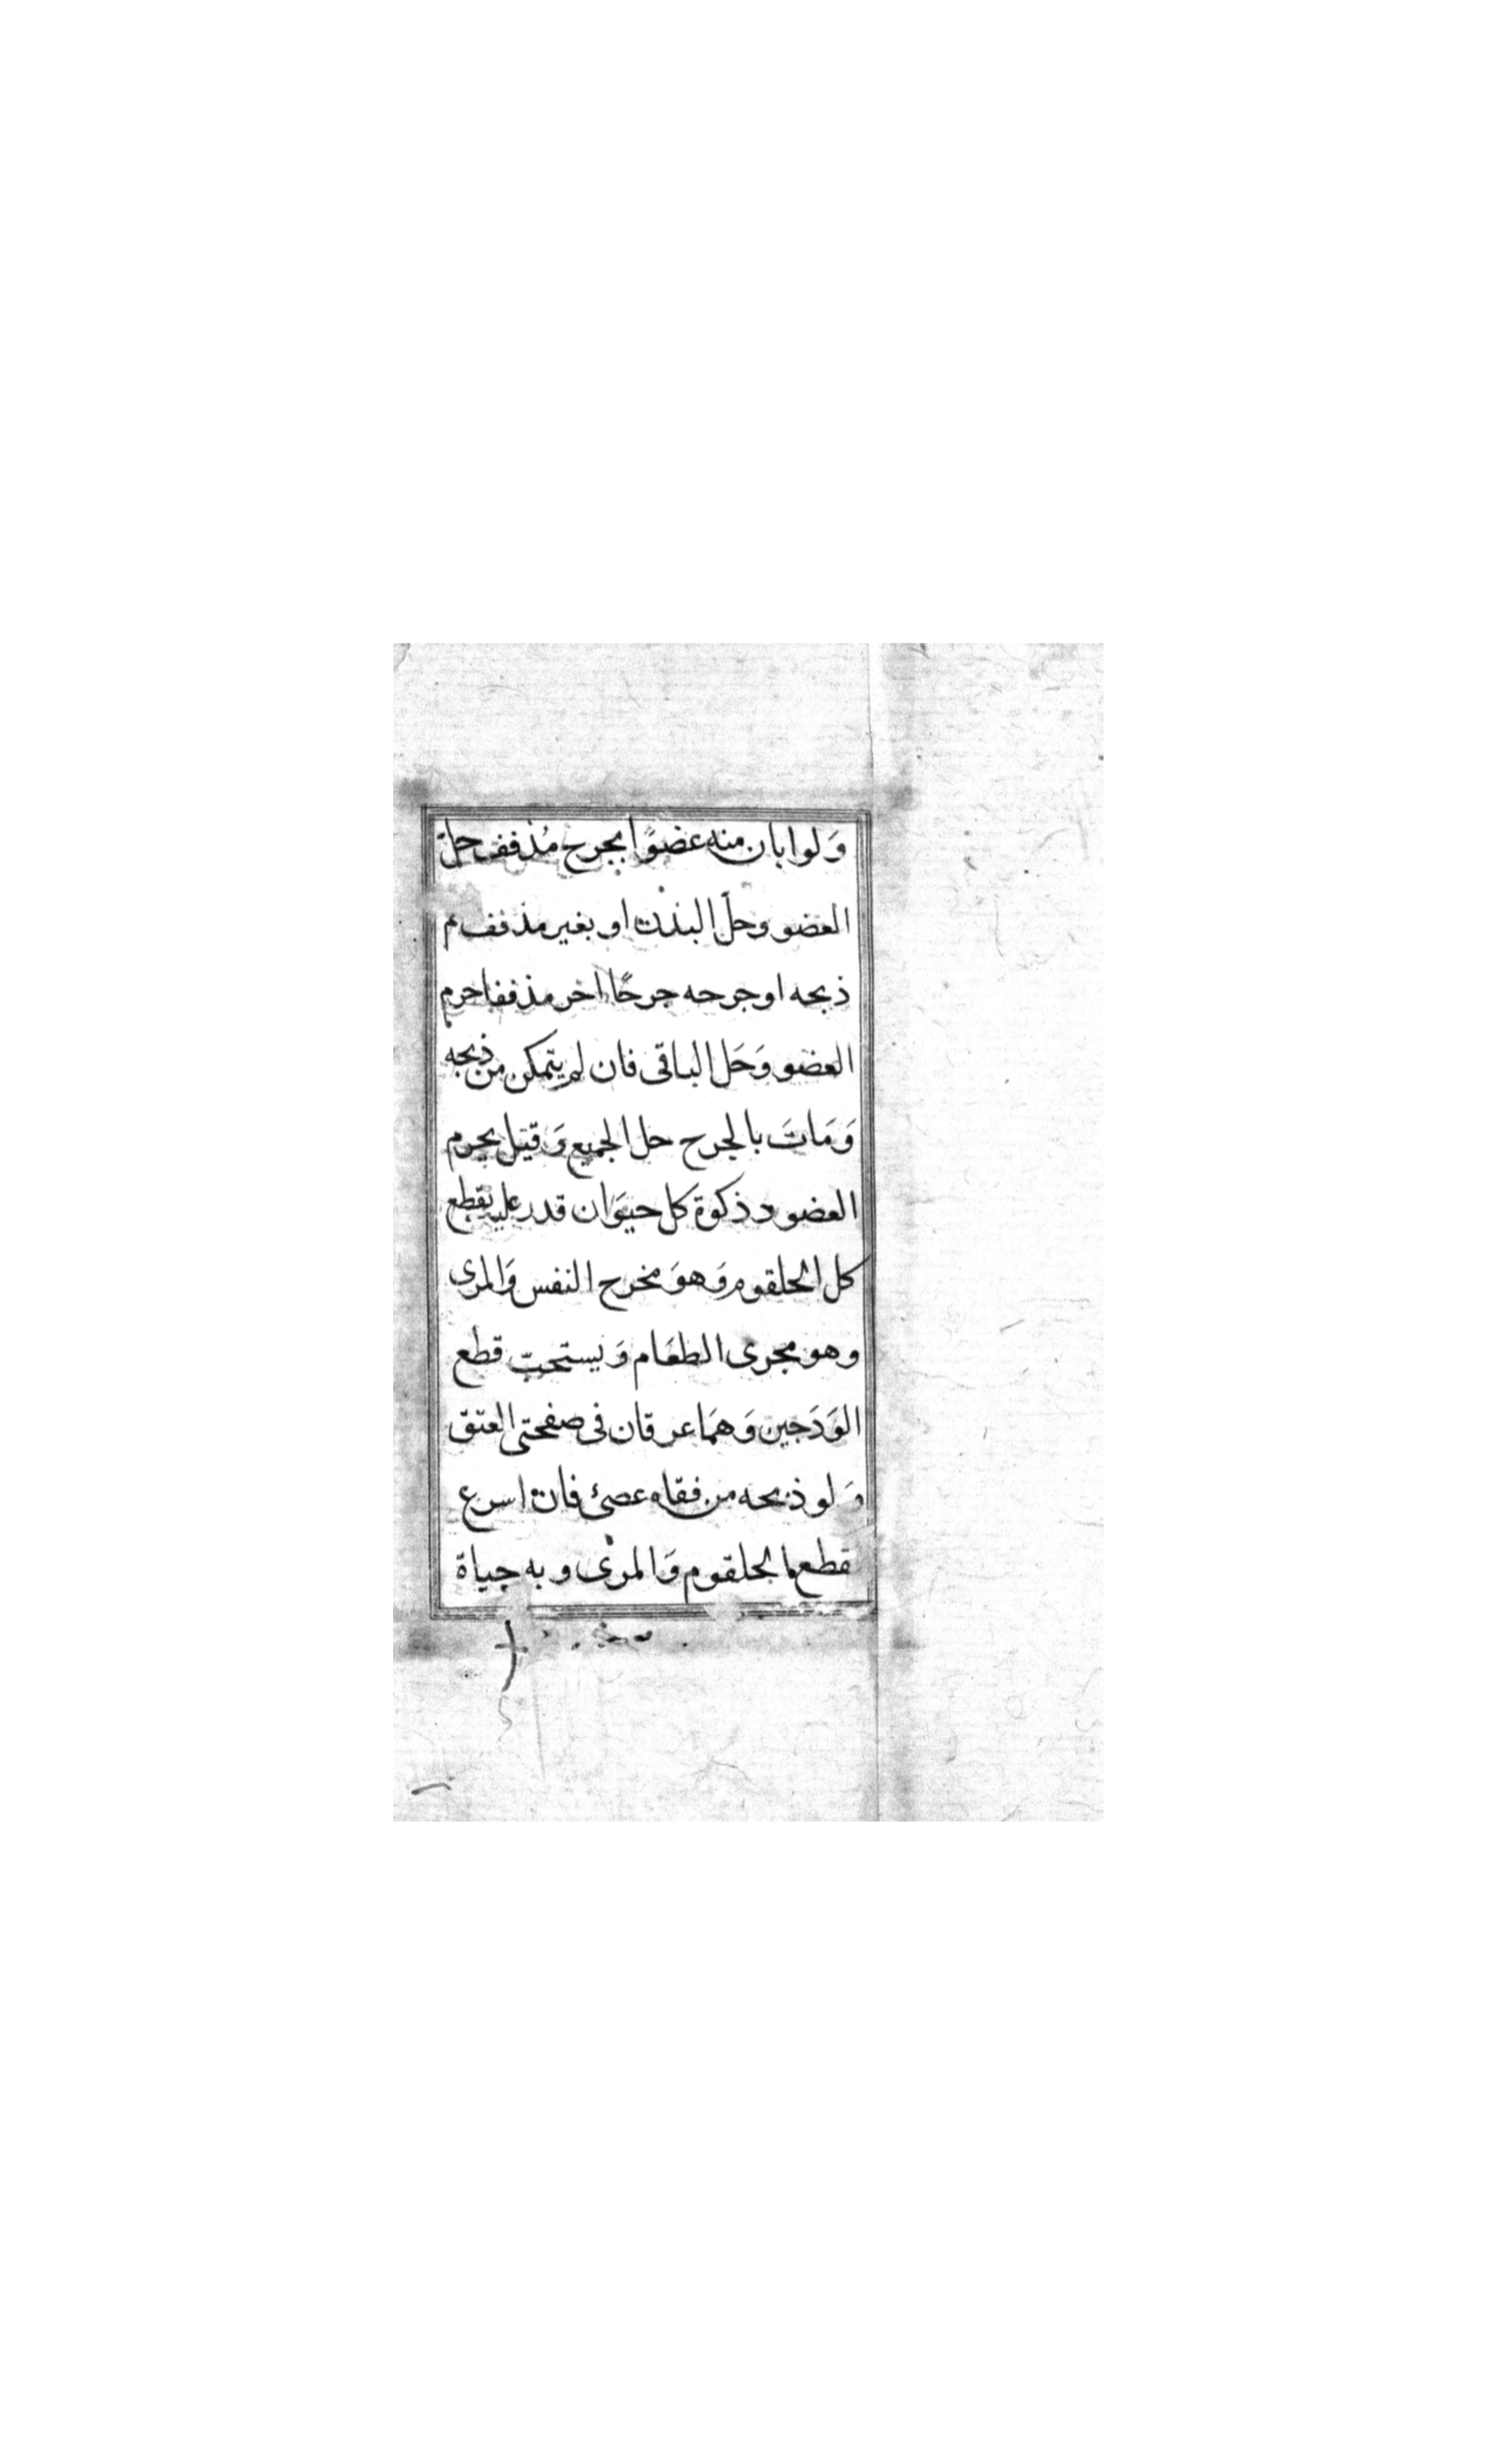 وَلو ابان منه عضوًا بجرح مُذفف حلّ
العضو وحلّ البدن او بغير مذفف ثم
ذبحه او جرحه جرحًا اخر مذففا حرم
العضو وَحَل الباقى فان لم يتمكن من ذبحه
وَمَاتَ بالجرح حل الجميع وَقيل يحرم
العضو وذكوة كل حيوَان قدر عليه بقطع
كل الحلقوم وَهوَ مخرج النفس وَالمرى
وهو مجرى الطعَام وَيستحبّ قطع
الوَدَجين وَهمَا عرقان فى صفحتى العنق
وَلو ذبحه من قفاه عصى فان اسرع
قطع الحلقوم وَالمرى وبه حياة